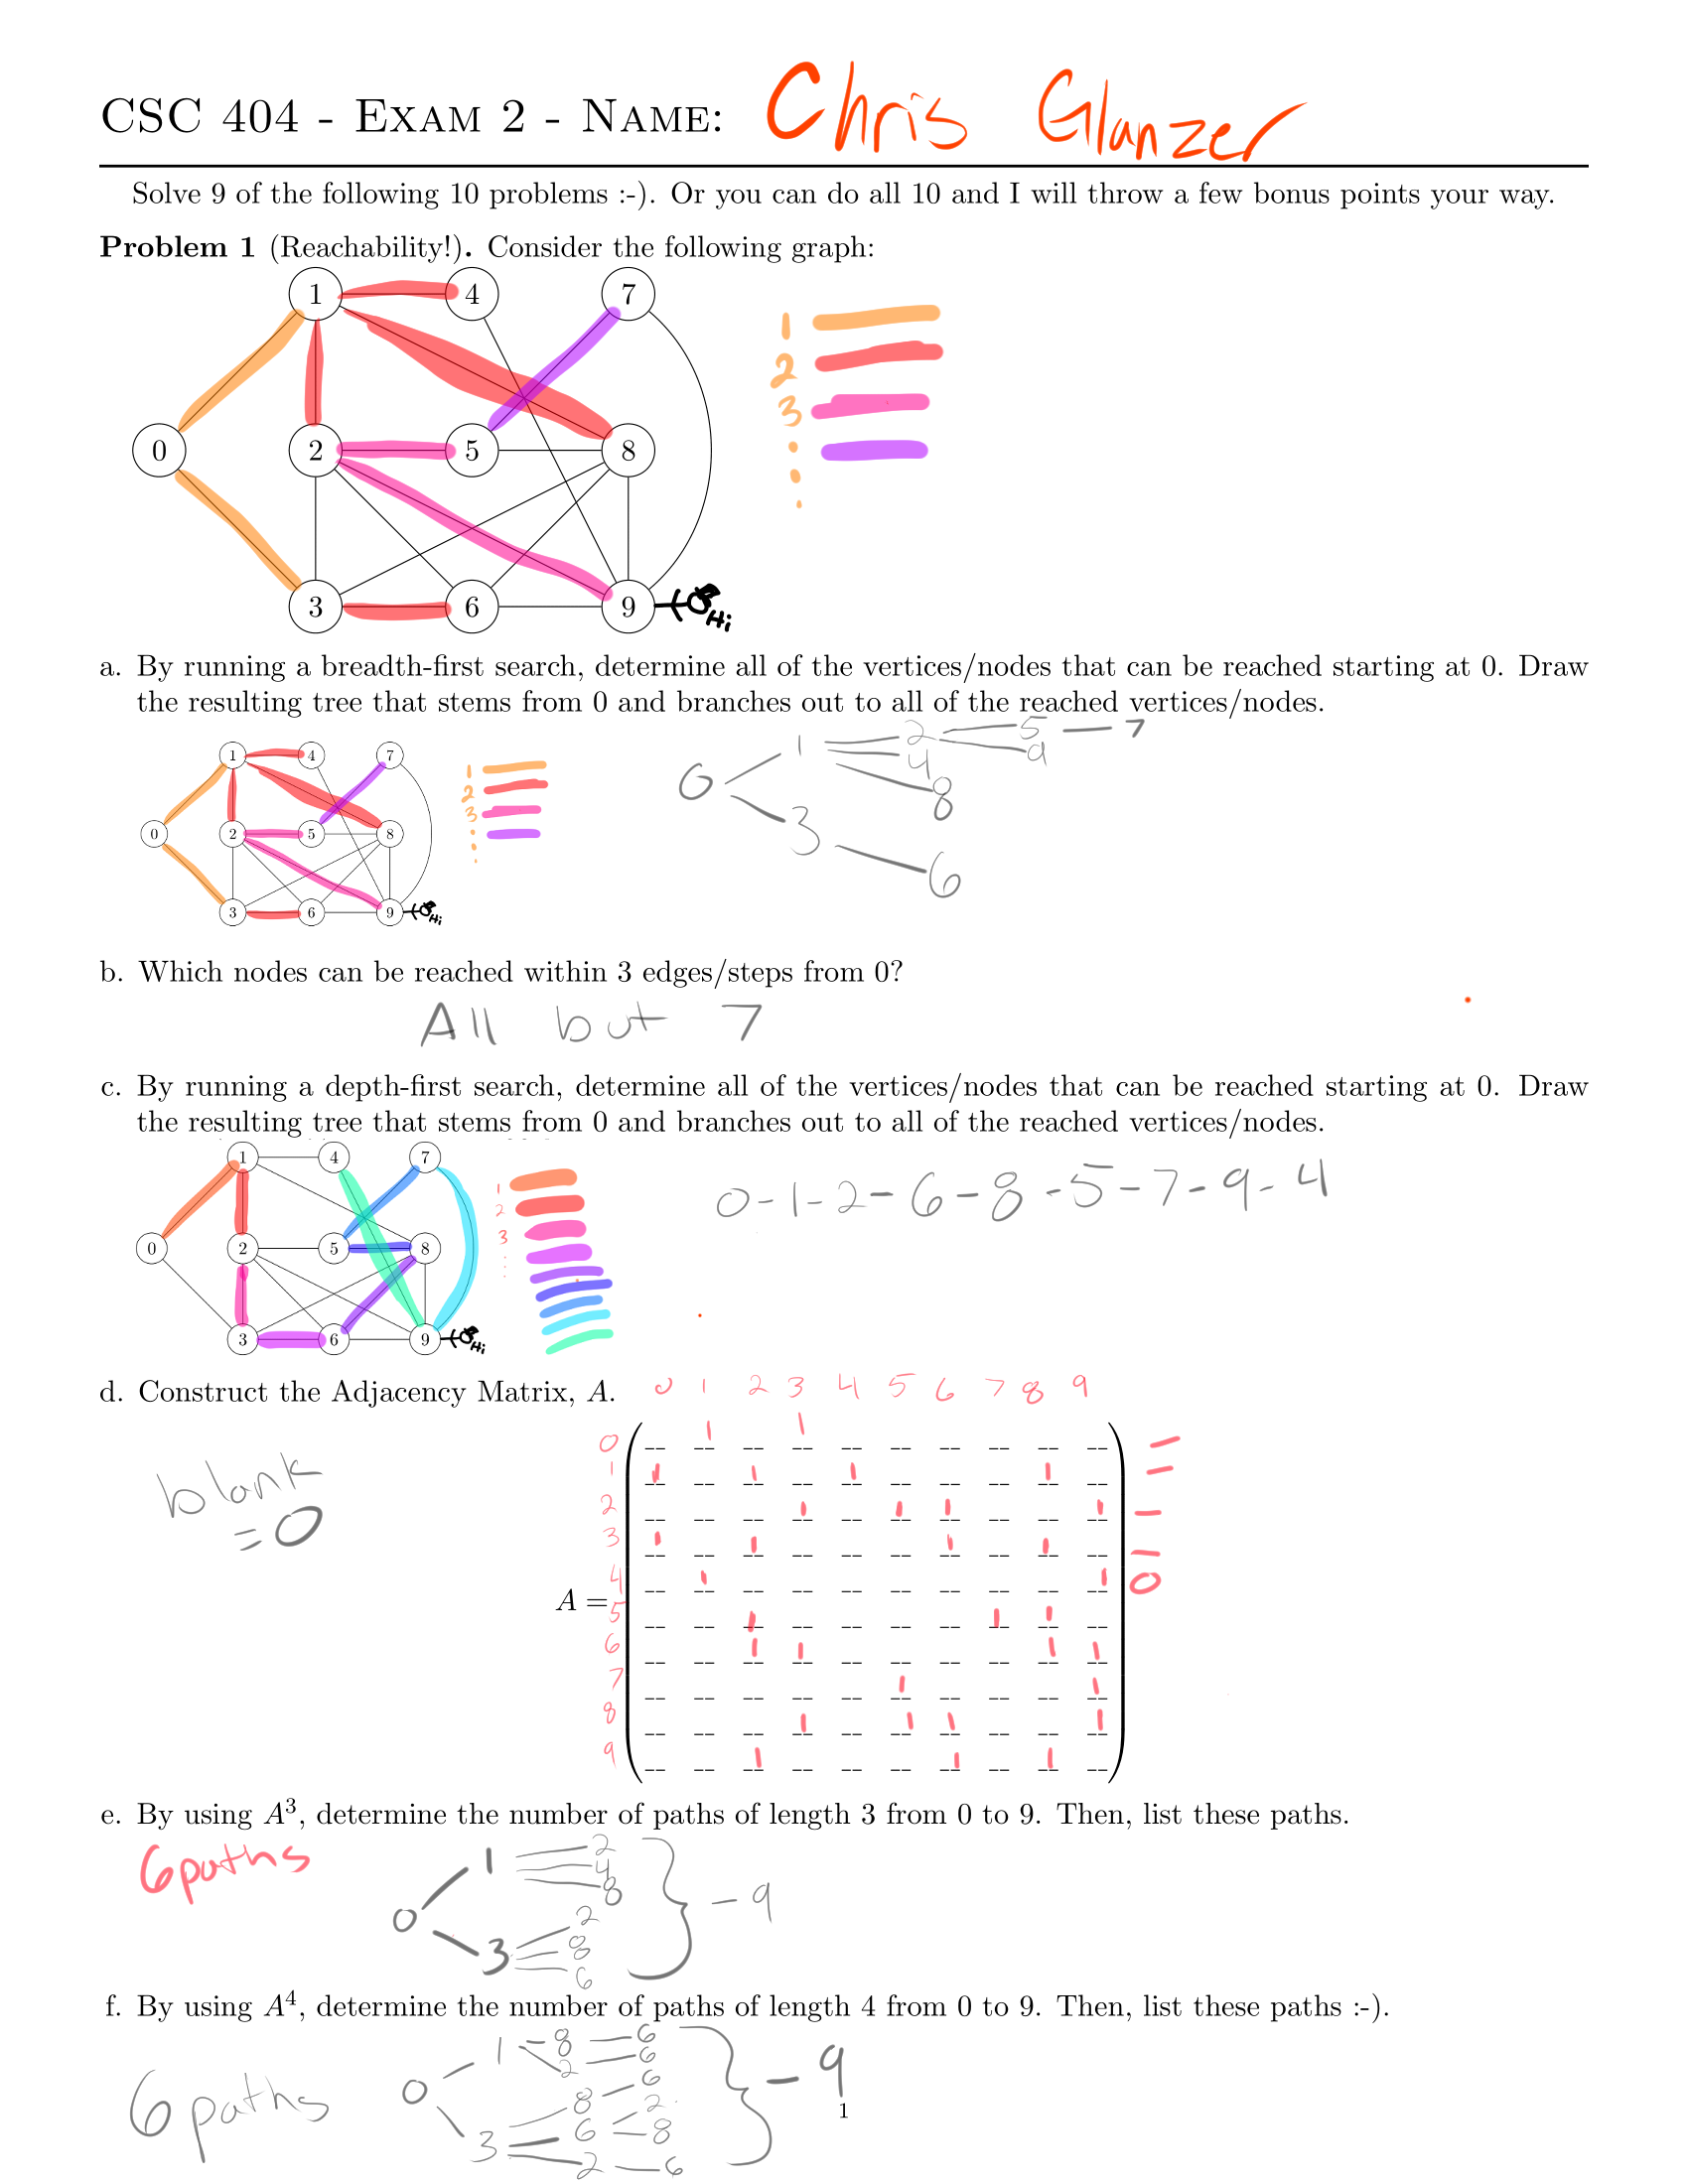 CSC 404 - EXAM 2 - NAME: Chris Glanzer
Solve 9 of the following 10 problems :-). Or you can do all 10 and I will throw a few bonus points your way.
Problem 1 (Reachability!). Consider the following graph:
1 4 7
1
2
3
0 2 5 8
3 6 9 Hi
a. By running a breadth-first search, determine all of the vertices/nodes that can be reached starting at 0. Draw
the resulting tree that stems from 0 and branches out to all of the reached vertices/nodes.
1 4 7
1
2
3
0 2 5 8
3 6 9 Hi
0 1 2 5 7
4 9
8
3
6
b. Which nodes can be reached within 3 edges/steps from 0?
All but 7
c. By running a depth-first search, determine all of the vertices/nodes that can be reached starting at 0. Draw
the resulting tree that stems from 0 and branches out to all of the reached vertices/nodes.
1 4 7
1
2
3
0 2 5 8
3 6 9 Hi
0-1-2-6-8-5-7-9-4
d. Construct the Adjacency Matrix, A.
0 1 2 3 4 5 6 7 8 9
blank
=0
A =
0 1 1
1 1 1 1 1
2 1 1 1 1
3 1 1 1 1
4 1 1 0
5 1 1 1
6 1 1 1 1
7 1 1
8 1 1 1 1
9 1 1 1
e. By using A³, determine the number of paths of length 3 from 0 to 9. Then, list these paths.
6 paths
0 1 2
4
8
3 2
8
6
} - 9
f. By using A⁴, determine the number of paths of length 4 from 0 to 9. Then, list these paths :-).
6 paths
0 1 - 8 6
2 6
3 8 6
6 2
8
2 6
} - 9
1